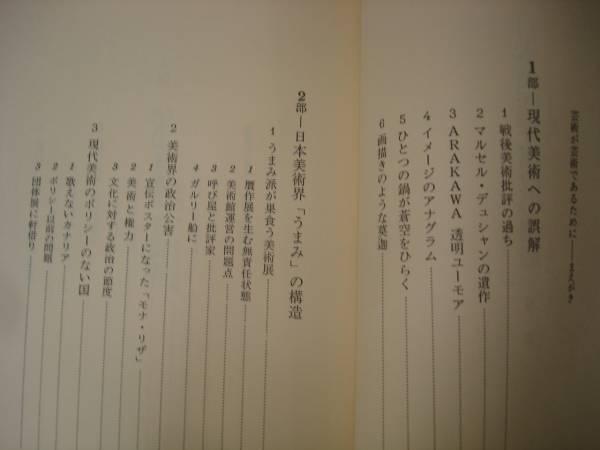 芸術が芸術であるために――まえがき
1部―現代美術への誤解
1 戦後美術批評の過ち
2 マルセル・デュシャンの遺作
3 ARAKAWA 透明ユーモア
4 イメージのアナグラム
5 ひとつの鍋が蒼空をひらく
6 画描きのような莫迦
2部―日本美術界「うまみ」の構造
1 うまみ派が巣食う美術展
1 贋作展を生む無責任状態
2 美術館運営の問題点
3 呼び屋と批評家
4 ガルリー船に
2 美術界の政治公害
1 宣伝ポスターになった「モナ・リザ」
2 美術と権力
3 文化に対する政治の節度
3 現代美術のポリシーのない国
1 歌えないカナリア
2 ポリシー以前の問題
3 団体展に軒借り